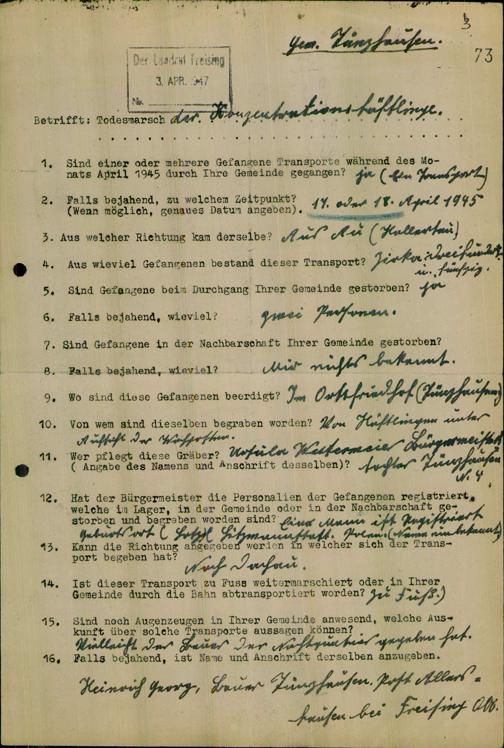 3
Gem. Tünzhausen.
73
Der Landrat Freising
3. APR. 1947
Nr.
Betrifft: Todesmarsch der Konzentrationshäftlinge.
1. Sind einer oder mehrere Gefangene Transporte während des Mo-
nats April 1945 durch Ihre Gemeinde gegangen? ja (Ein Transport)
2. Falls bejahend, zu welchem Zeitpunkt?
(Wenn möglich, genaues Datum angeben). 17. oder 18. April 1945
3. Aus welcher Richtung kam derselbe? Aus Au (Hallertau)
4. Aus wieviel Gefangenen bestand dieser Transport? Zirka
u. fünfzig.
5. Sind Gefangene beim Durchgang Ihrer Gemeinde gestorben? ja
6. Falls bejahend, wieviel? zwei Personen.
7. Sind Gefangene in der Nachbarschaft Ihrer Gemeinde gestorben?
8. Falls bejahend, wieviel? Mir nichts bekannt.
9. Wo sind diese Gefangenen beerdigt? Im Ortsfriedhof (Tünzhausen)
10. Von wem sind dieselben begraben worden? Von Häftlingen unter
Aufsicht der Wachposten.
11. Wer pflegt diese Gräber? Ursula Bürgermeisters
( Angabe des Namens und Anschrift desselben)? tochter Tünzhausen
N. 4
12. Hat der Bürgermeister die Personalien der Gefangenen registriert,
welche im Lager, in der Gemeinde oder in der Nachbarschaft ge-
storben und begraben worden sind? Eine Mann ist Registriert
Geburtsort ( Polen. (Name unbekannt)
13. Kann die Richtung angegeben werden in welcher sich der Trans-
port begeben hat? Nach Dachau.
14. Ist dieser Transport zu Fuss weitermarschiert oder in Ihrer
Gemeinde durch die Bahn abtransportiert worden? Zu Fuß.)
15. Sind noch Augenzeugen in Ihrer Gemeinde anwesend, welche Aus-
kunft über solche Transporte aussagen können?
Vielleicht der Bauer der Nachtquartier gegeben hat.
16. Falls bejahend, ist Name und Anschrift derselben anzugeben.
Heinrich Georg, Bauer Tünzhausen. Post Allers-
hausen bei Freising Obb.